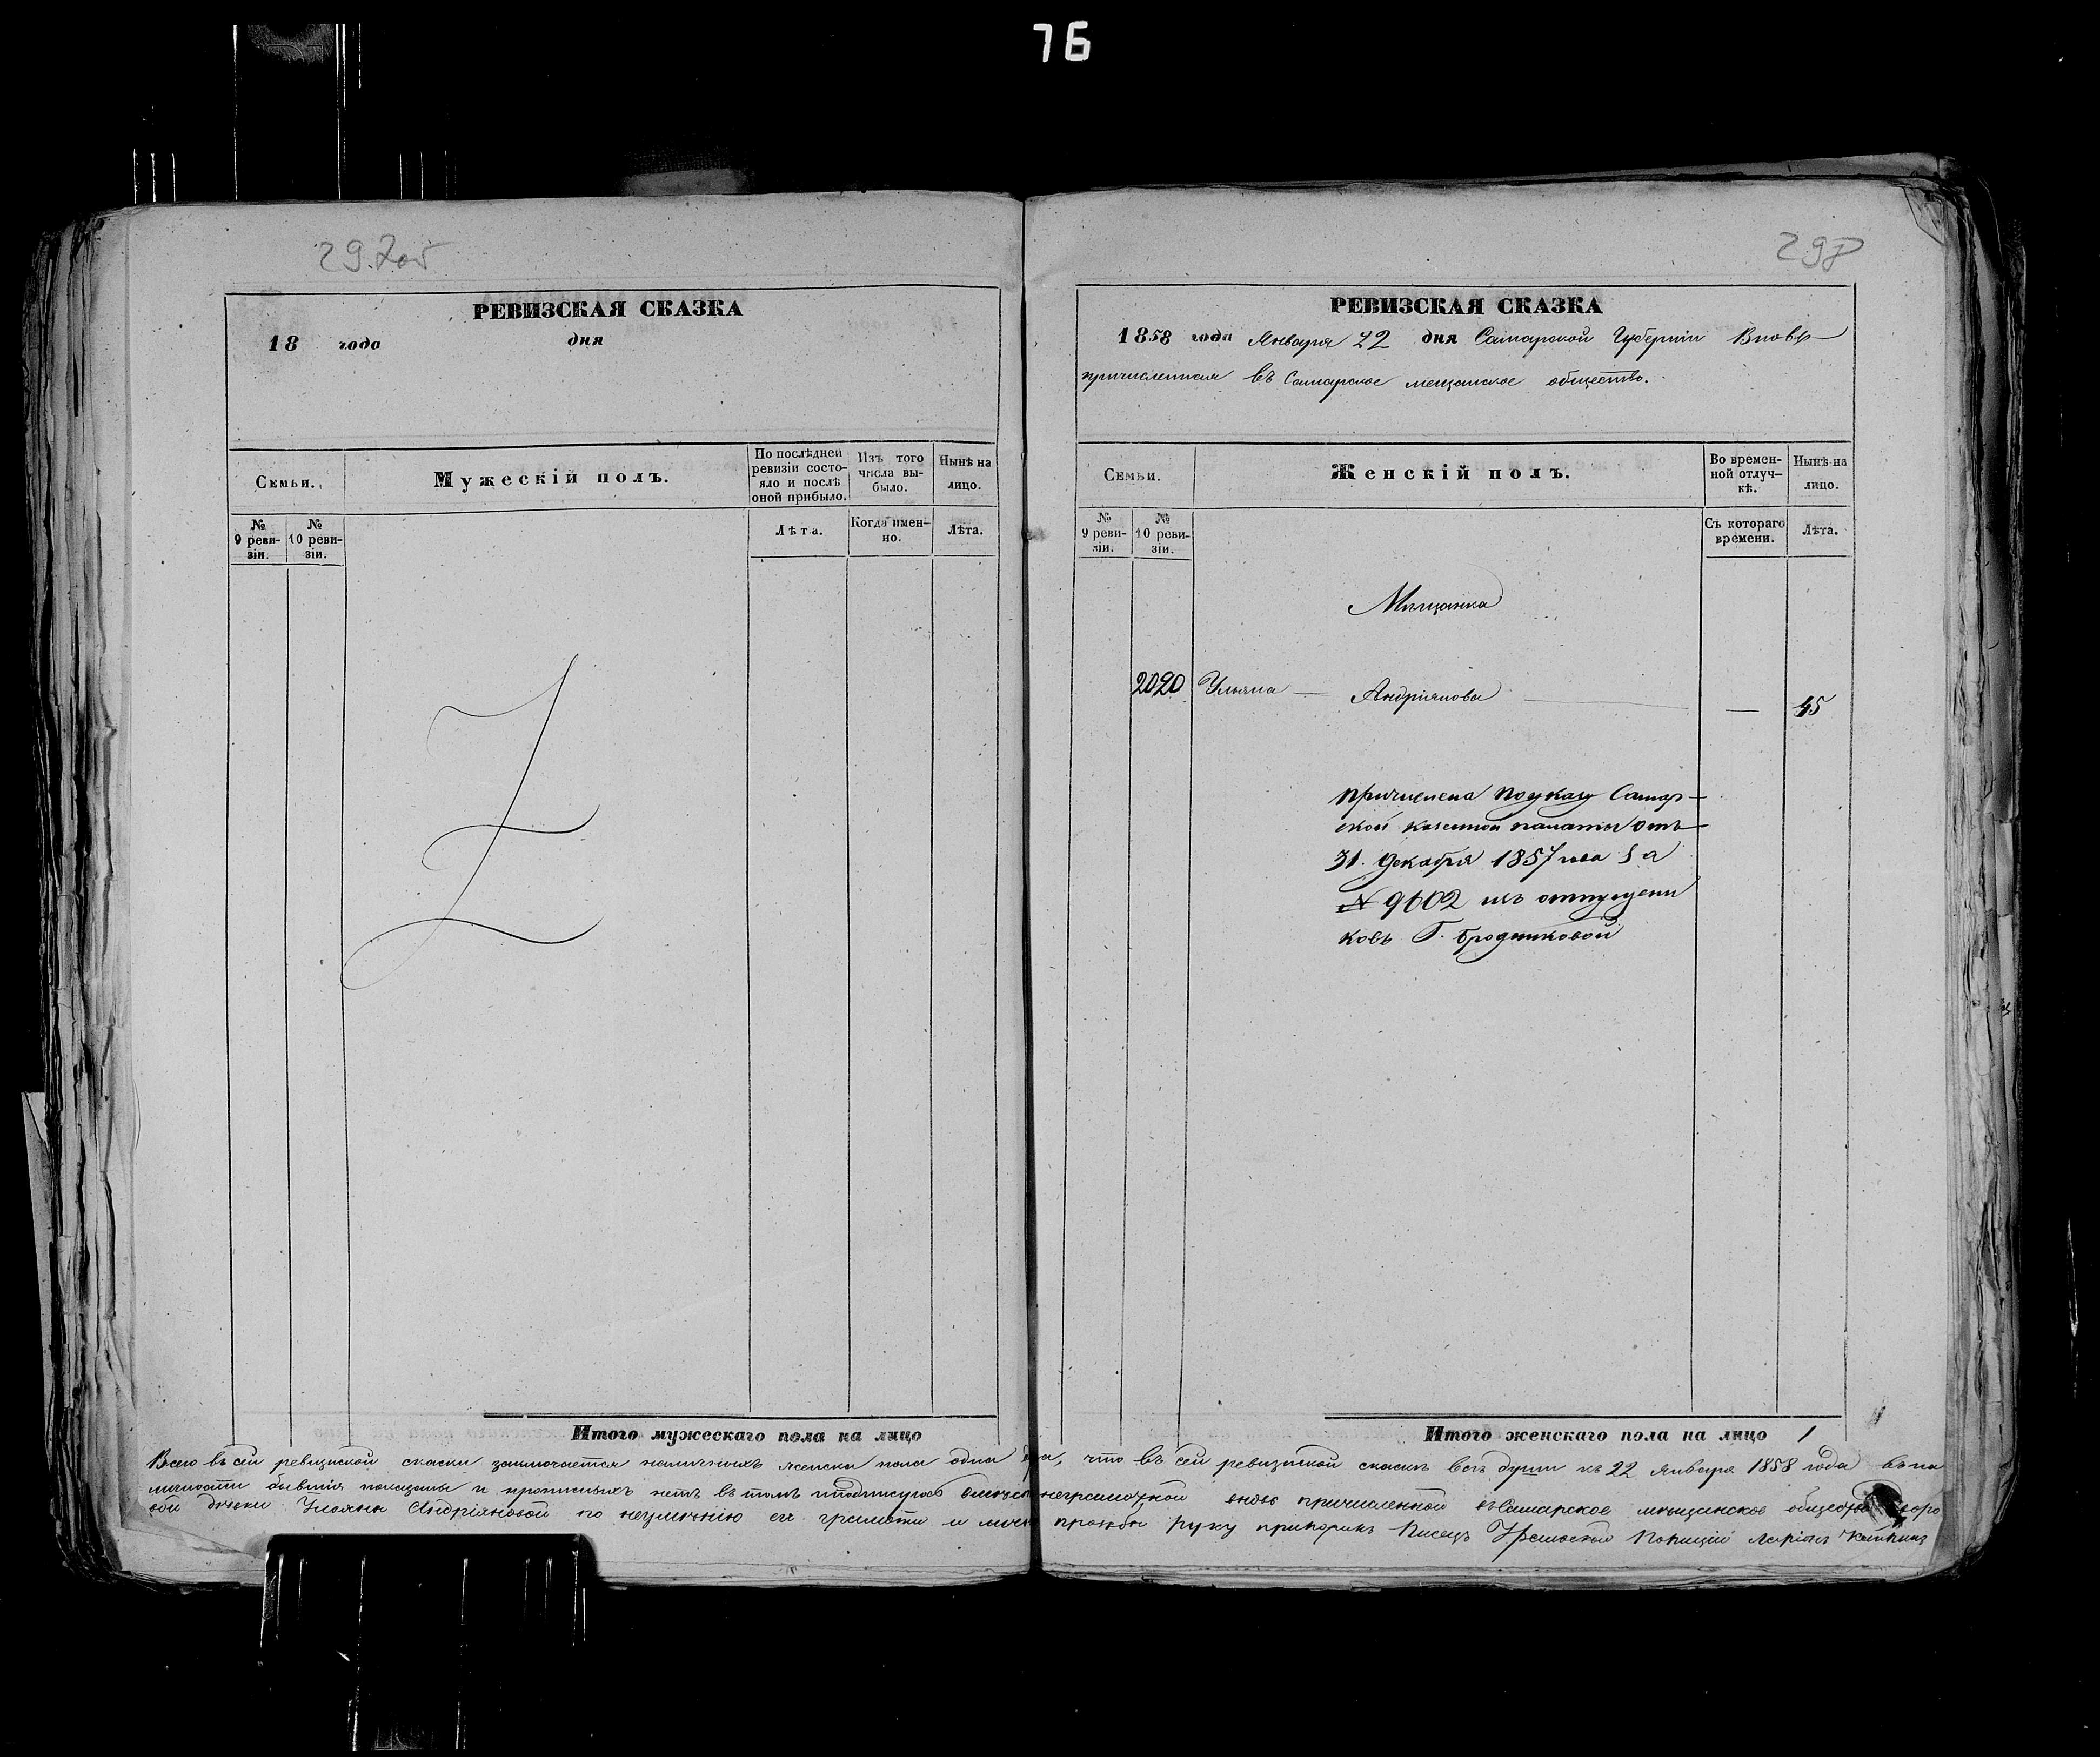 76
297об
298
РЕВИЗСКАЯ СКАЗКА
18 года дня
Семьи.
Мужескій полъ.
По послѣдней ревизіи состояло и послѣ оной прибыло.
Изъ того числа выбыло.
Нынѣ на лицо.
№ 9 ревизіи.
№ 10 ревизіи.
Лѣта.
Когда имен-
но.
Лѣта.
Итого мужескаго пола на лицо
РЕВИЗСКАЯ СКАЗКА
1858 года Января 22 дня Самарской Губерніи Вновь
причисленная въ Самарское мещанское общество.
Семьи.
Женскій полъ.
Во времен-
ной отлуч-
кѣ.
Нынѣ на
лицо.
№ 9 ревизіи.
№ 10 ревизіи.
Съ котораго
времени.
Лѣта.
Мещанка
2020 Ульяна — Андріянова — 45
причислена по указу Самар-
ской казенной палаты отъ
31. Декабря 1857 года за
№ 9602 изъ отпущени
ковъ Г. Бродниковой
Итого женскаго пола на лицо 1
Всего въ сей ревизской скаски заключается наличныхъ женска пола одна что въ сей ревизской скаскѣ все души къ 22 Января 1858 года въ на
личности бывшія показаны и прописныхъ нетъ въ томъ подписуюсь неграмотной вновь причисленной въ Самарское мещанское общество
вой девки Ульяны Андріяновой по неумению ея грамоти и прозьбы руку приложилъ Писецъ Полиціи